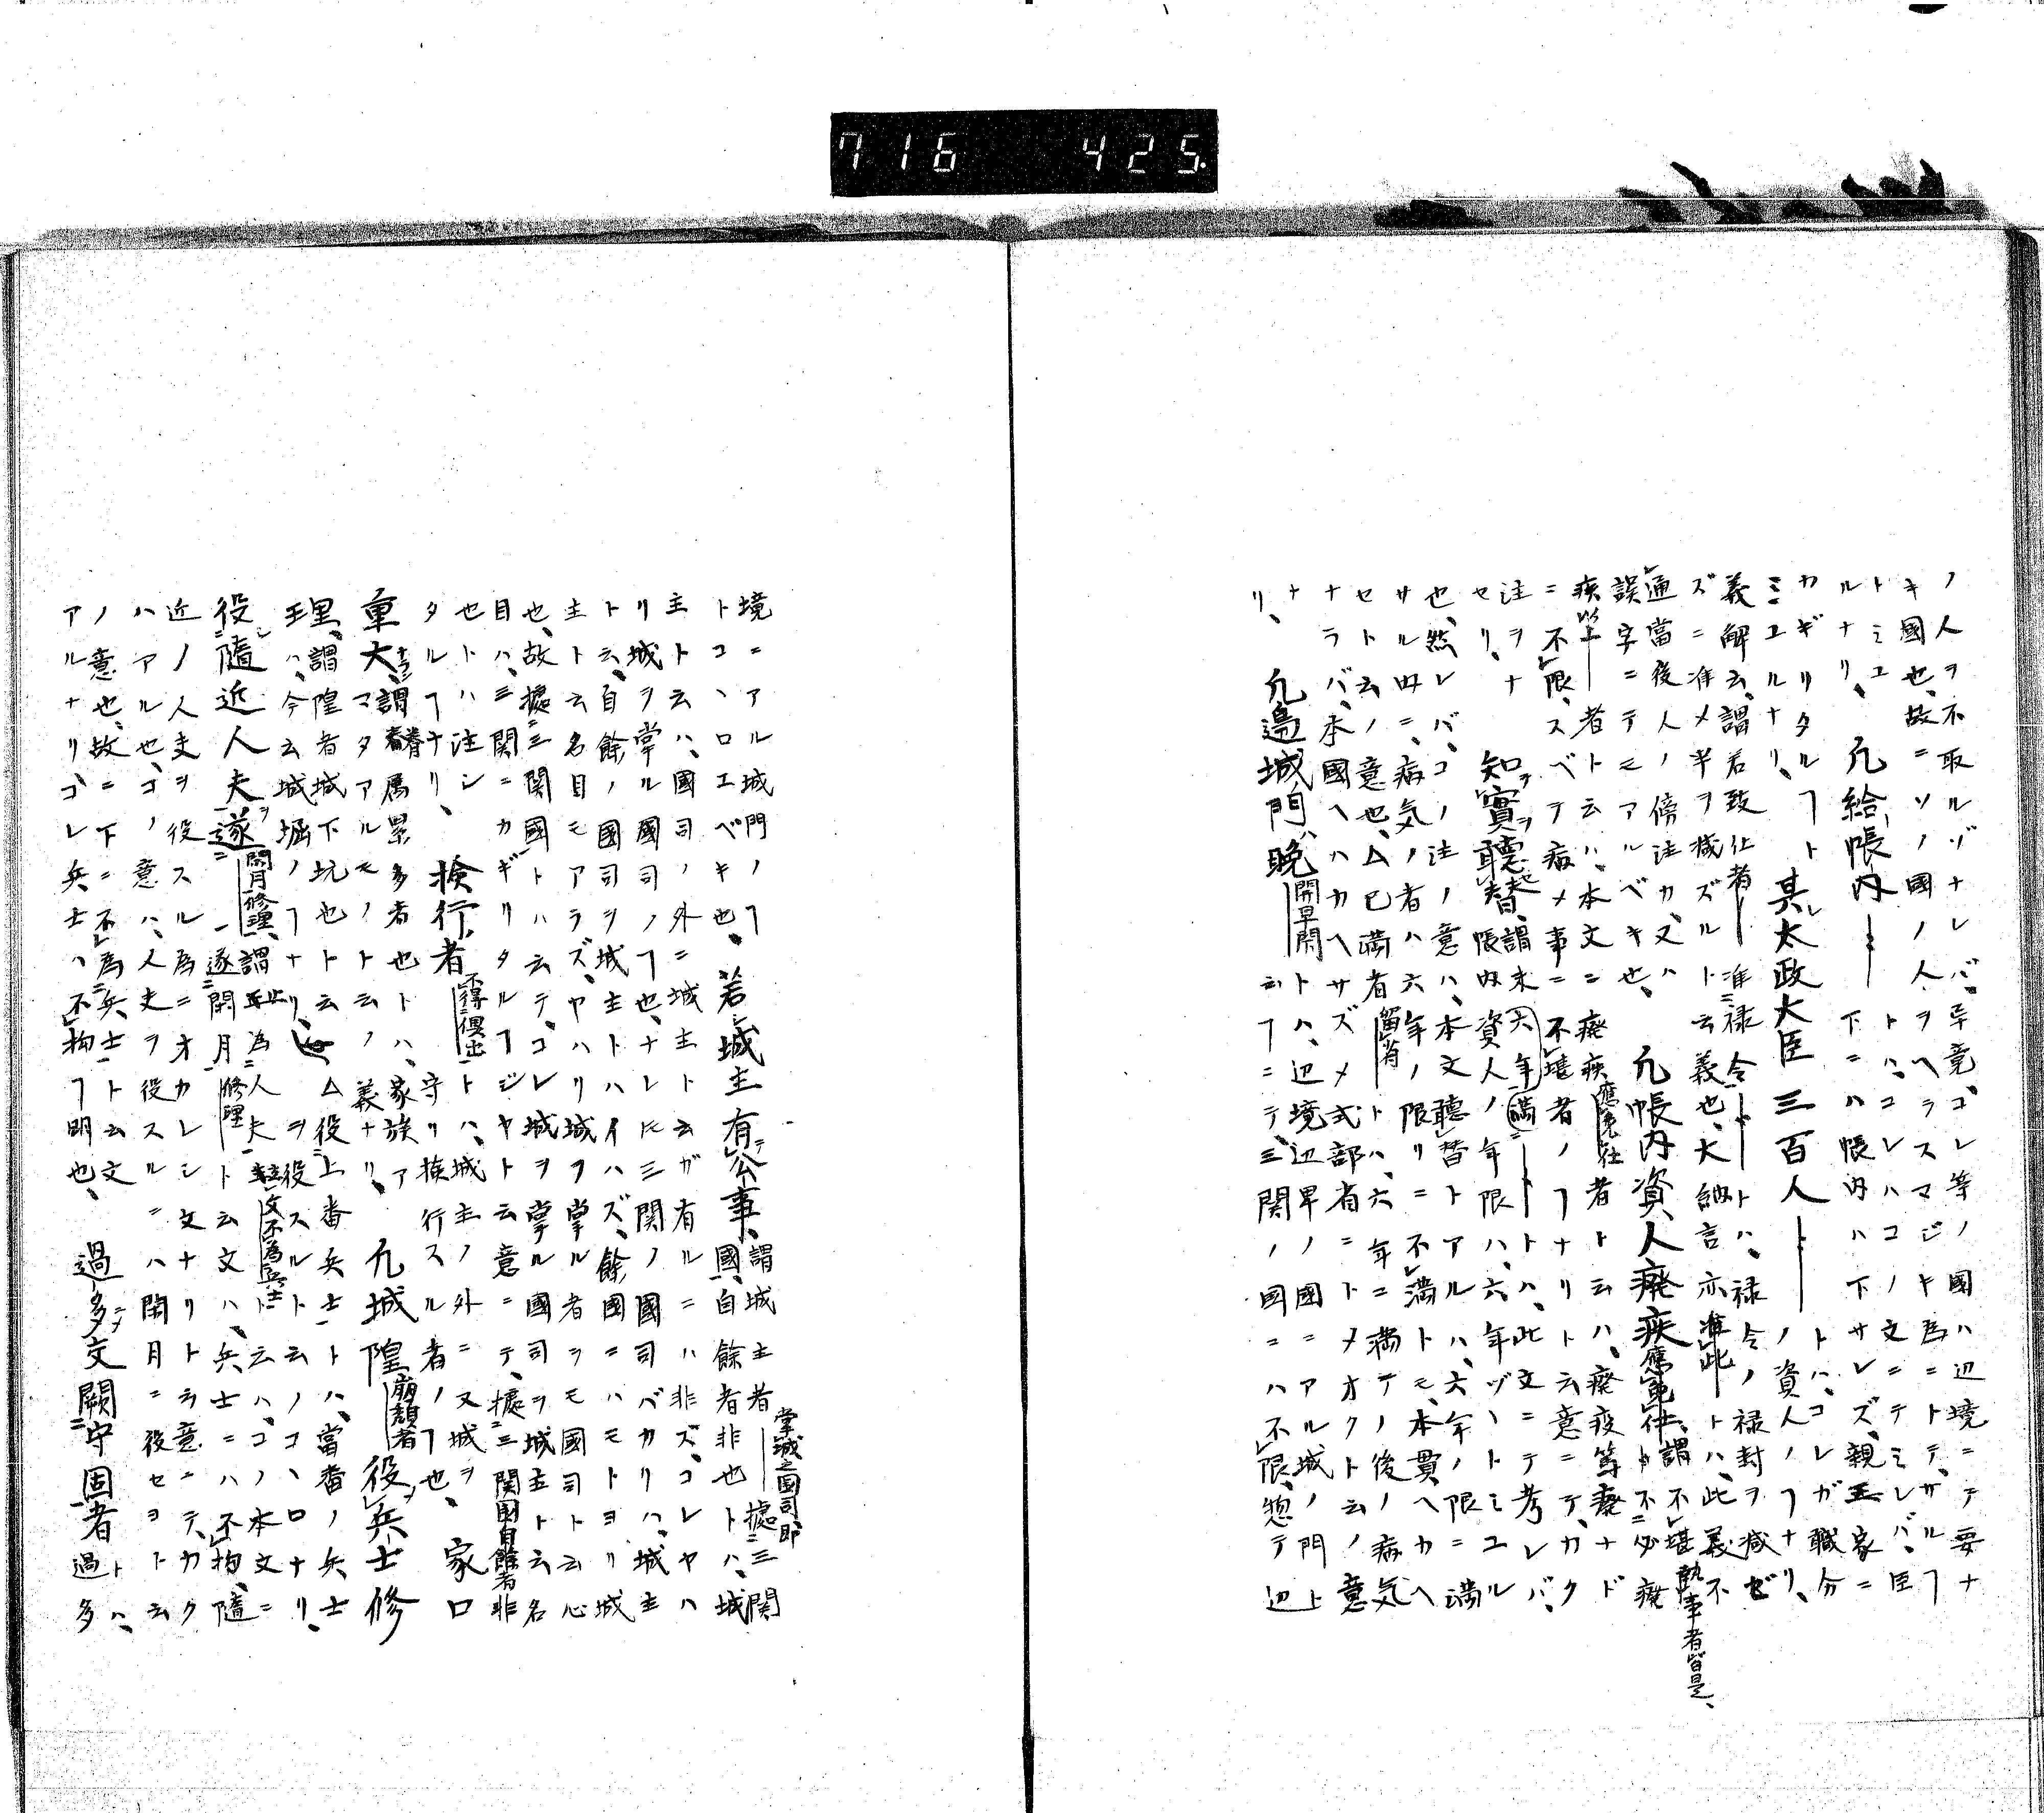 716 425
ノ人ヲ不取ルゾナレバ、畢竟、コレ等ノ國ハ辺境ニテ要ナ
キ國也、故ニソノ國ノ人ヲヘラスマジキ為ニトテ、サルヿ
トミユ 凡給帳内── トハ、コレハコノ文ニテミレバ、臣
ルナリ、 下ニハ帳内ハ下サレズ、親王家ニ
カギリタルヿト 其太政大臣三百人── トハ、コレガ職分
ミユルナリ、 ノ資人ノヿナリ、
義解云、謂若致仕者── 准禄令── トハ、禄令ノ禄封ヲ減ゼ
ズニ准メ半ヲ減ズルト云義也、大納言亦准此トハ、此義不
通當後人ノ傍注カ、又ハ 凡帳内資人癈疾應免仕、謂不堪執事者皆是、
誤字ニテモアルベキ也、 不必癈
疾等──者ト云ハ、本文ニ癈疾應免仕者ト云ハ、癈疫篤癈ナド
ニ不限、スベテ病メ事ニ不堪者ノヿナリト云意ニテ、カク
注ヲナ 知實聽替、謂未六年満── トハ、此文ニテ考レバ、
セリ、 帳内資人ノ年限ハ、六年ヅヽトミユル
也、然レバ、コノ注ノ意ハ、本文聽替トアルハ、六年ノ限ニ満
サル内ニ、病気ノ者ハ六年ノ限リニ不満トモ、本貫ヘカヘ
セト云ノ意也、△已満者留省トハ、六年ニ満テノ後ノ病気
ナラバ、本國ヘハカヘサズメ式部省ニトメオクト云ノ意
ナ 凡邊城門晩開早閇トハ、辺境辺界ノ國ニアル城ノ門ト
リ、 云ヿニテ、三関ノ國ニハ不限、惣テ辺
境ニアル城門ノヿ 若城主有公事、謂城主者掌城之國司、即據三関
トコヽロエベキ也、 國、自餘者非也トハ、城
主ト云ハ、國司ノ外ニ城主ト云ガ有ルニハ非ズ、コレヤハ
リ城ヲ掌ル國司ノヿ也、ナレド三関ノ國司バカリハ、城主
ト云、自餘ノ國司ヲ城主トハイハズ、餘國ニハモトヨリ城
主ト云名目モアラズ、ヤハリ城ヲ掌ル者ヲモ國司ト云心
也、故據三関國トハ云テ、コレ城ヲ掌ル國司ヲ城主ト云名
目ハ、三関ニカギリタルヿジヤト云意ニテ、據三関國自餘者非
也トハ注シ 檢行者不得俱出トハ、城主ノ外ニ又城ヲ 家口
タルヿナリ、 守リ檢行スル者ノヿ也、
重大、謂眷属累多者也トハ、家族ア 凡城隍崩頽者役兵士修
マタアルモノト云ノ義ナリ、
理、謂隍者城下坑也ト云、△役上番兵士トハ、當番ノ兵士
ハ、今云城堀ノヿナリ、 ヲ役スルト云ノコヽロナリ、
役隨近人夫逐閑月修理、謂止為人夫、文不為兵士ト云ハ、コノ本文ニ
逐閑月修理ト云文ハ、兵士ニハ不拘、隨
近ノ人夫ヲ役スル為ニオカレシ文ナリト云意ニテ、カク
ハアル也、コノ意ハ、人夫ヲ役スルニハ閑月ニ役セヨト云
ノ意也、故ニ下ニ不為兵士ト云文 過多文闕守固者トハ、
アルナリ、コレ兵士ハ不拘ヿ明也、 過多